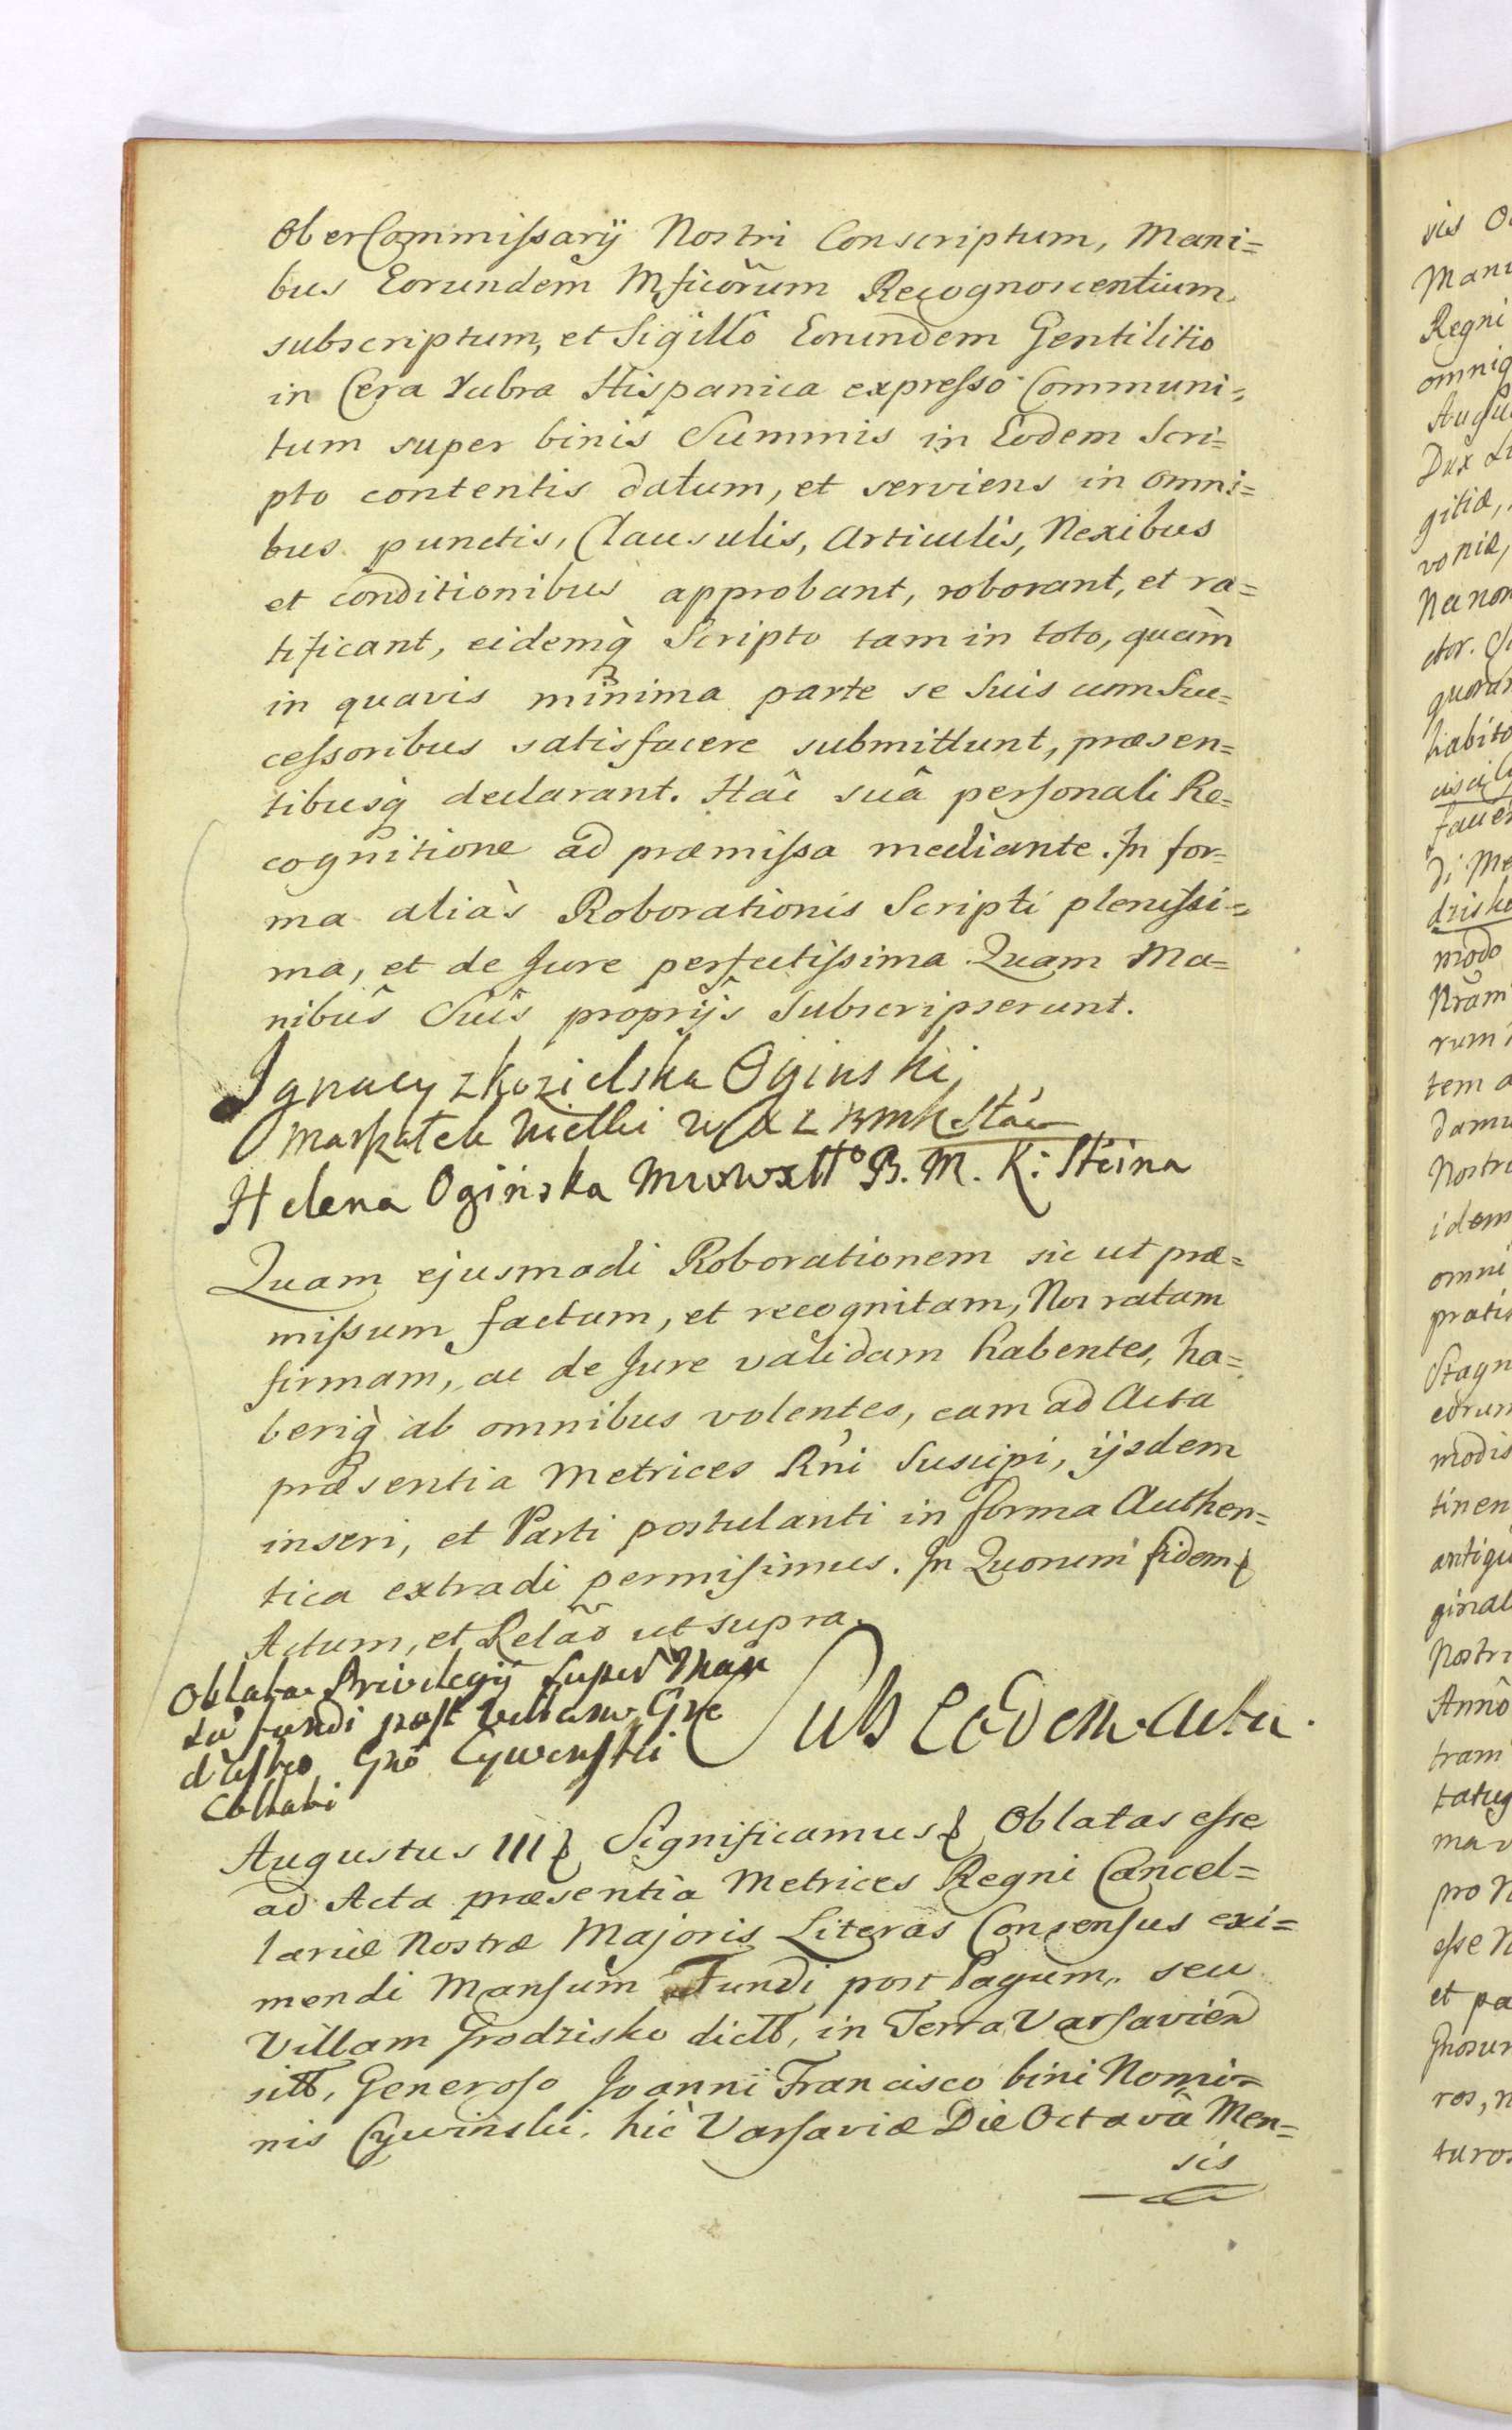 OberCommissarÿ Nostri Conscriptum, Mani=
bus Eorundem Mficorum Recognoscentium
subscriptum, et Sigillô Eorundem Gentilitio
in Cera rubra Hispanica expresso Communi=
tum super binis Summis in Eodem Scri=
pto contentis datum, et serviens in omni=
bus punctis, Clausulis, Articulis, Nexibus
et conditionibus approbant, roborant, et ra=
tificant, eidemq̀ Scripto tam in toto, quàm
in quavis minima parte se suis cum Suc=
cessoribus satisfacere submittunt, præsen=
tibusq̀ declarant. Hâc suâ personali Re=
cognitione ad præmissa mediante. In for=
ma aliàs Roborationis Scripti plenissi=
ma, et de Jure perfectissima Quam Ma=
nibûs Suîs proprijs Subscripserunt.
Ignacy z Kozielska Oginski
Marszałek Wielki
Helena Ogińska B. M. K:
Quam ejusmodi Roborationem sic ut præ=
missum factum, et recognitam, Nos ratam
firmam, ac de Jure validam habentes, ha=
beriq̀ ab omnibus volentes, eam ad Acta
præsentia Metrices Rni Suscipi, ijsdem
inseri, et Parti postulanti in forma Authen=
tica extradi permisimus. In Quorum fidem
Actum, et Relaõ ut supra.
Oblata Privilegij super Man
sū fundi post villam Gro
dzisko Gno Cywinski
Collati
Sub eodem Actu.
Augustus III Significamus Oblatas esse
ad Acta præsentia Metrices Regni Cancel=
lariæ Nostræ Majoris Literas Consensus exi=
mendi Mansum Fundi post Pagum, seu
Villam Grodzisko dict, in Terra Varsavien
sitt, Generoso Joanni Francisco bini Nomi=
nis Cywinski, hic Varsaviæ Die Octavâ Men=
sis
vis
Mani
Regni
omniq
Augu
Dux Li
gitiæ,
voniæ,
Nostri
idem
omni
pratis
Stagn
modis
tinen
antiqu
ginal
Nostri
Annô
tram
pro N
esse N
et pa
ros, n
turos